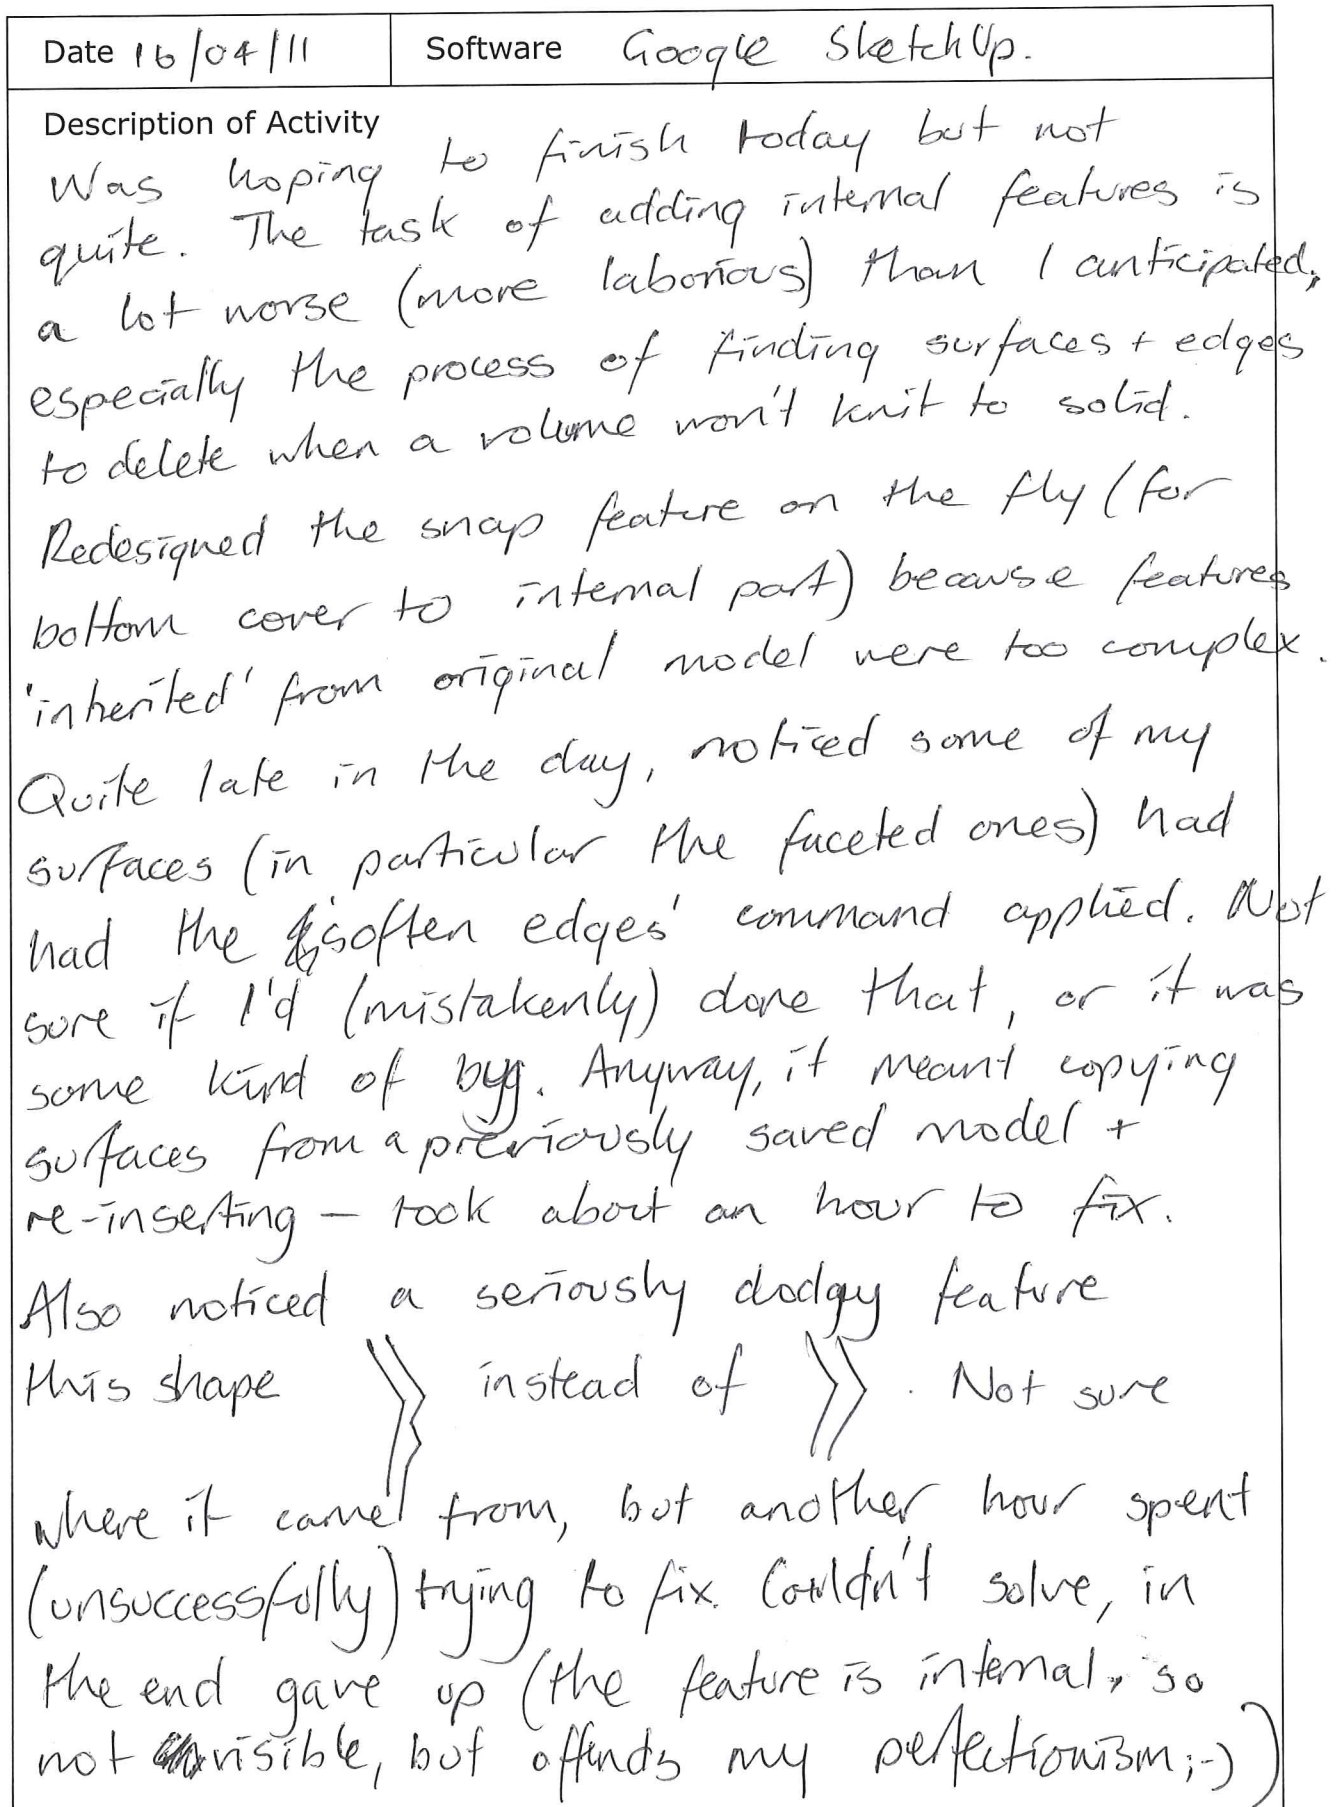 Date 16/04/11 Software Google SketchUp.
Description of Activity
Was hoping to finish today but not
quite. The task of adding internal features is
a lot worse (more laborious) than I anticipated,
especially the process of finding surfaces + edges
to delete when a volume won't knit to solid.
Redesigned the snap feature on the fly (for
bottom cover to internal part) because features
'inherited' from original model were too complex.
Quite late in the day, noticed some of my
surfaces (in particular the faceted ones) had
had the 'soften edges' command applied. Not
sure if I'd (mistakenly) done that, or it was
some kind of bug. Anyway, it meant copying
surfaces from a previously saved model +
re-inserting – took about an hour to fix.
Also noticed a seriously dodgy feature
this shape instead of . Not sure
where it came from, but another hour spent
(unsuccessfully) trying to fix. Couldn't solve, in
the end gave up (the feature is internal, so
not visible, but offends my perfectionism ;-) )